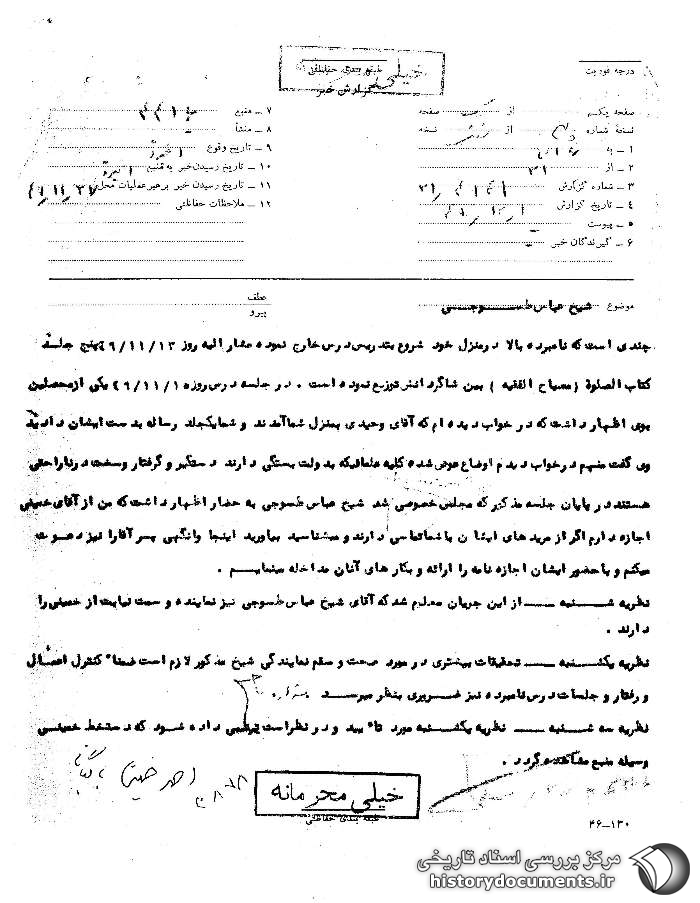 درجه فوریت
خیلی
طبقه بندی حفاظتی
گزارش خبر
صفحه یکم از صفحه
نسخهٔ شماره از نسخه
۱ – به
۲ – از ۳۱
۳ – شماره گزارش
۴ – تاریخ گزارش
۵ – پیوست
۶ – گیرندگان خبر
۷ – منبع
۸ – منشأ
۹ – تاریخ وقوع
۱۰ – تاریخ رسیدن خبر به منبع
۱۱ – تاریخ رسیدن خبر برهبر عملیات محل
۱۲ – ملاحظات حفاظتی
موضوع شیخ عباس طسوجی
عطف
پیرو
چندی است که نامبرده بالا در منزل خود شروع بتدریس درس خارج نموده مشارالیه روز ۴۹/۱۱/۱۳ پنج جلد
کتاب الصلوة (مصباح الفقیه) بین شاگردانش توزیع نموده است . در جلسه درس روزه ۴۹/۱۱/۱ یکی از محصلین
بوی اظهار داشت که در خواب دیده ام که آقای وحیدی بمنزل شما آمدند و شما یکجلد رساله بدست ایشان دادید
وی گفت منهم در خواب دیدم اوضاع عوض شده کلیه علمائیکه بدولت بستگی دارند دستگیر و گرفتار و سخت در ناراحتی
هستند در پایان جلسه مذکور که مجلس خصوصی شد شیخ عباس طسوجی به حضار اظهار داشت که من از آقای خمینی
اجازه دارم اگر از مرید های ایشان با شما تماس دارند و میشناسید بیاورید اینجا وانگهی پسر آقا را نیز دعوت
میکنم و با حضور ایشان اجازه نامه را ارائه و بکار های آنان مداخله مینمایم .
نظریه شنبه ــ از این جریان معلوم شد که آقای شیخ عباس طسوجی نیز نماینده و سمت نیابت از خمینی را
دارند .
نظریه یکشنبه ــ تحقیقات بیشتری در مورد صحت و سقم نمایندگی شیخ مذکور لازم است ضمناً کنترل اعمال
و رفتار و جلسات درس نامبرده نیز ضروری بنظر میرسد
نظریه سه شنبه ــ نظریه یکشنبه مورد تائید و در نظر است ترتیبی داده شود که دستخط خمینی
وسیله منبع مشاهده گردد .
خیلی محرمانه
طبقه بندی حفاظتی
۴۶–۱۳۰
مرکز بررسی اسناد تاریخی
historydocuments.ir